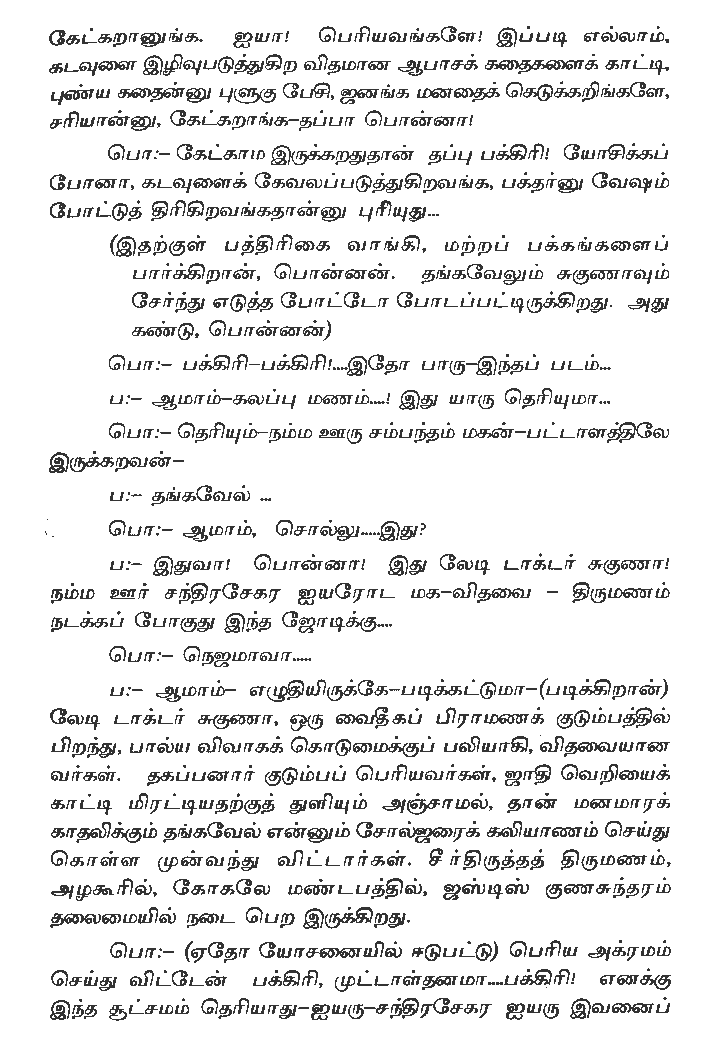 கேட்கறானுங்க. ஐயா! பெரியவங்களே! இப்படி எல்லாம்,
கடவுளை இழிவுபடுத்துகிற விதமான ஆபாசக் கதைகளைக் காட்டி,
புண்ய கதைன்னு புளுகு பேசி, ஜனங்க மனதைக் கெடுக்கறிங்களே,
சரியான்னு, கேட்கறாங்க–தப்பா பொன்னா!
பொ:– கேட்காம இருக்கறதுதான் தப்பு பக்கிரி! யோசிக்கப்
போனா, கடவுளைக் கேவலப்படுத்துகிறவங்க, பக்தர்னு வேஷம்
போட்டுத் திரிகிறவங்கதான்னு புரியுது...
(இதற்குள் பத்திரிகை வாங்கி, மற்றப் பக்கங்களைப்
பார்க்கிறான், பொன்னன். தங்கவேலும் சுகுணாவும்
சேர்ந்து எடுத்த போட்டோ போடப்பட்டிருக்கிறது. அது
கண்டு, பொன்னன்)
பொ:– பக்கிரி–பக்கிரி!....இதோ பாரு–இந்தப் படம்...
ப:– ஆமாம்–கலப்பு மணம்....! இது யாரு தெரியுமா...
பொ:– தெரியும்–நம்ம ஊரு சம்பந்தம் மகன்–பட்டாளத்திலே
இருக்கறவன்–
ப:– தங்கவேல் ...
பொ:– ஆமாம், சொல்லு.....இது?
ப:– இதுவா! பொன்னா! இது லேடி டாக்டர் சுகுணா!
நம்ம ஊர் சந்திரசேகர ஐயரோட மக–விதவை – திருமணம்
நடக்கப் போகுது இந்த ஜோடிக்கு....
பொ:– நெஜமாவா.....
ப:– ஆமாம்– எழுதியிருக்கே–படிக்கட்டுமா–(படிக்கிறான்)
லேடி டாக்டர் சுகுணா, ஒரு வைதீகப் பிராமணக் குடும்பத்தில்
பிறந்து, பால்ய விவாகக் கொடுமைக்குப் பலியாகி, விதவையான
வர்கள். தகப்பனார் குடும்பப் பெரியவர்கள், ஜாதி வெறியைக்
காட்டி மிரட்டியதற்குத் துளியும் அஞ்சாமல், தான் மனமாரக்
காதலிக்கும் தங்கவேல் என்னும் சோல்ஜரைக் கலியாணம் செய்து
கொள்ள முன்வந்து விட்டார்கள். சீர்திருத்தத் திருமணம்,
அழகூரில், கோகலே மண்டபத்தில், ஜஸ்டிஸ் குணசுந்தரம்
தலைமையில் நடை பெற இருக்கிறது.
பொ:– (ஏதோ யோசனையில் ஈடுபட்டு) பெரிய அக்ரமம்
செய்து விட்டேன் பக்கிரி, முட்டாள்தனமா....பக்கிரி! எனக்கு
இந்த சூட்சமம் தெரியாது–ஐயரு–சந்திரசேகர ஐயரு இவனைப்